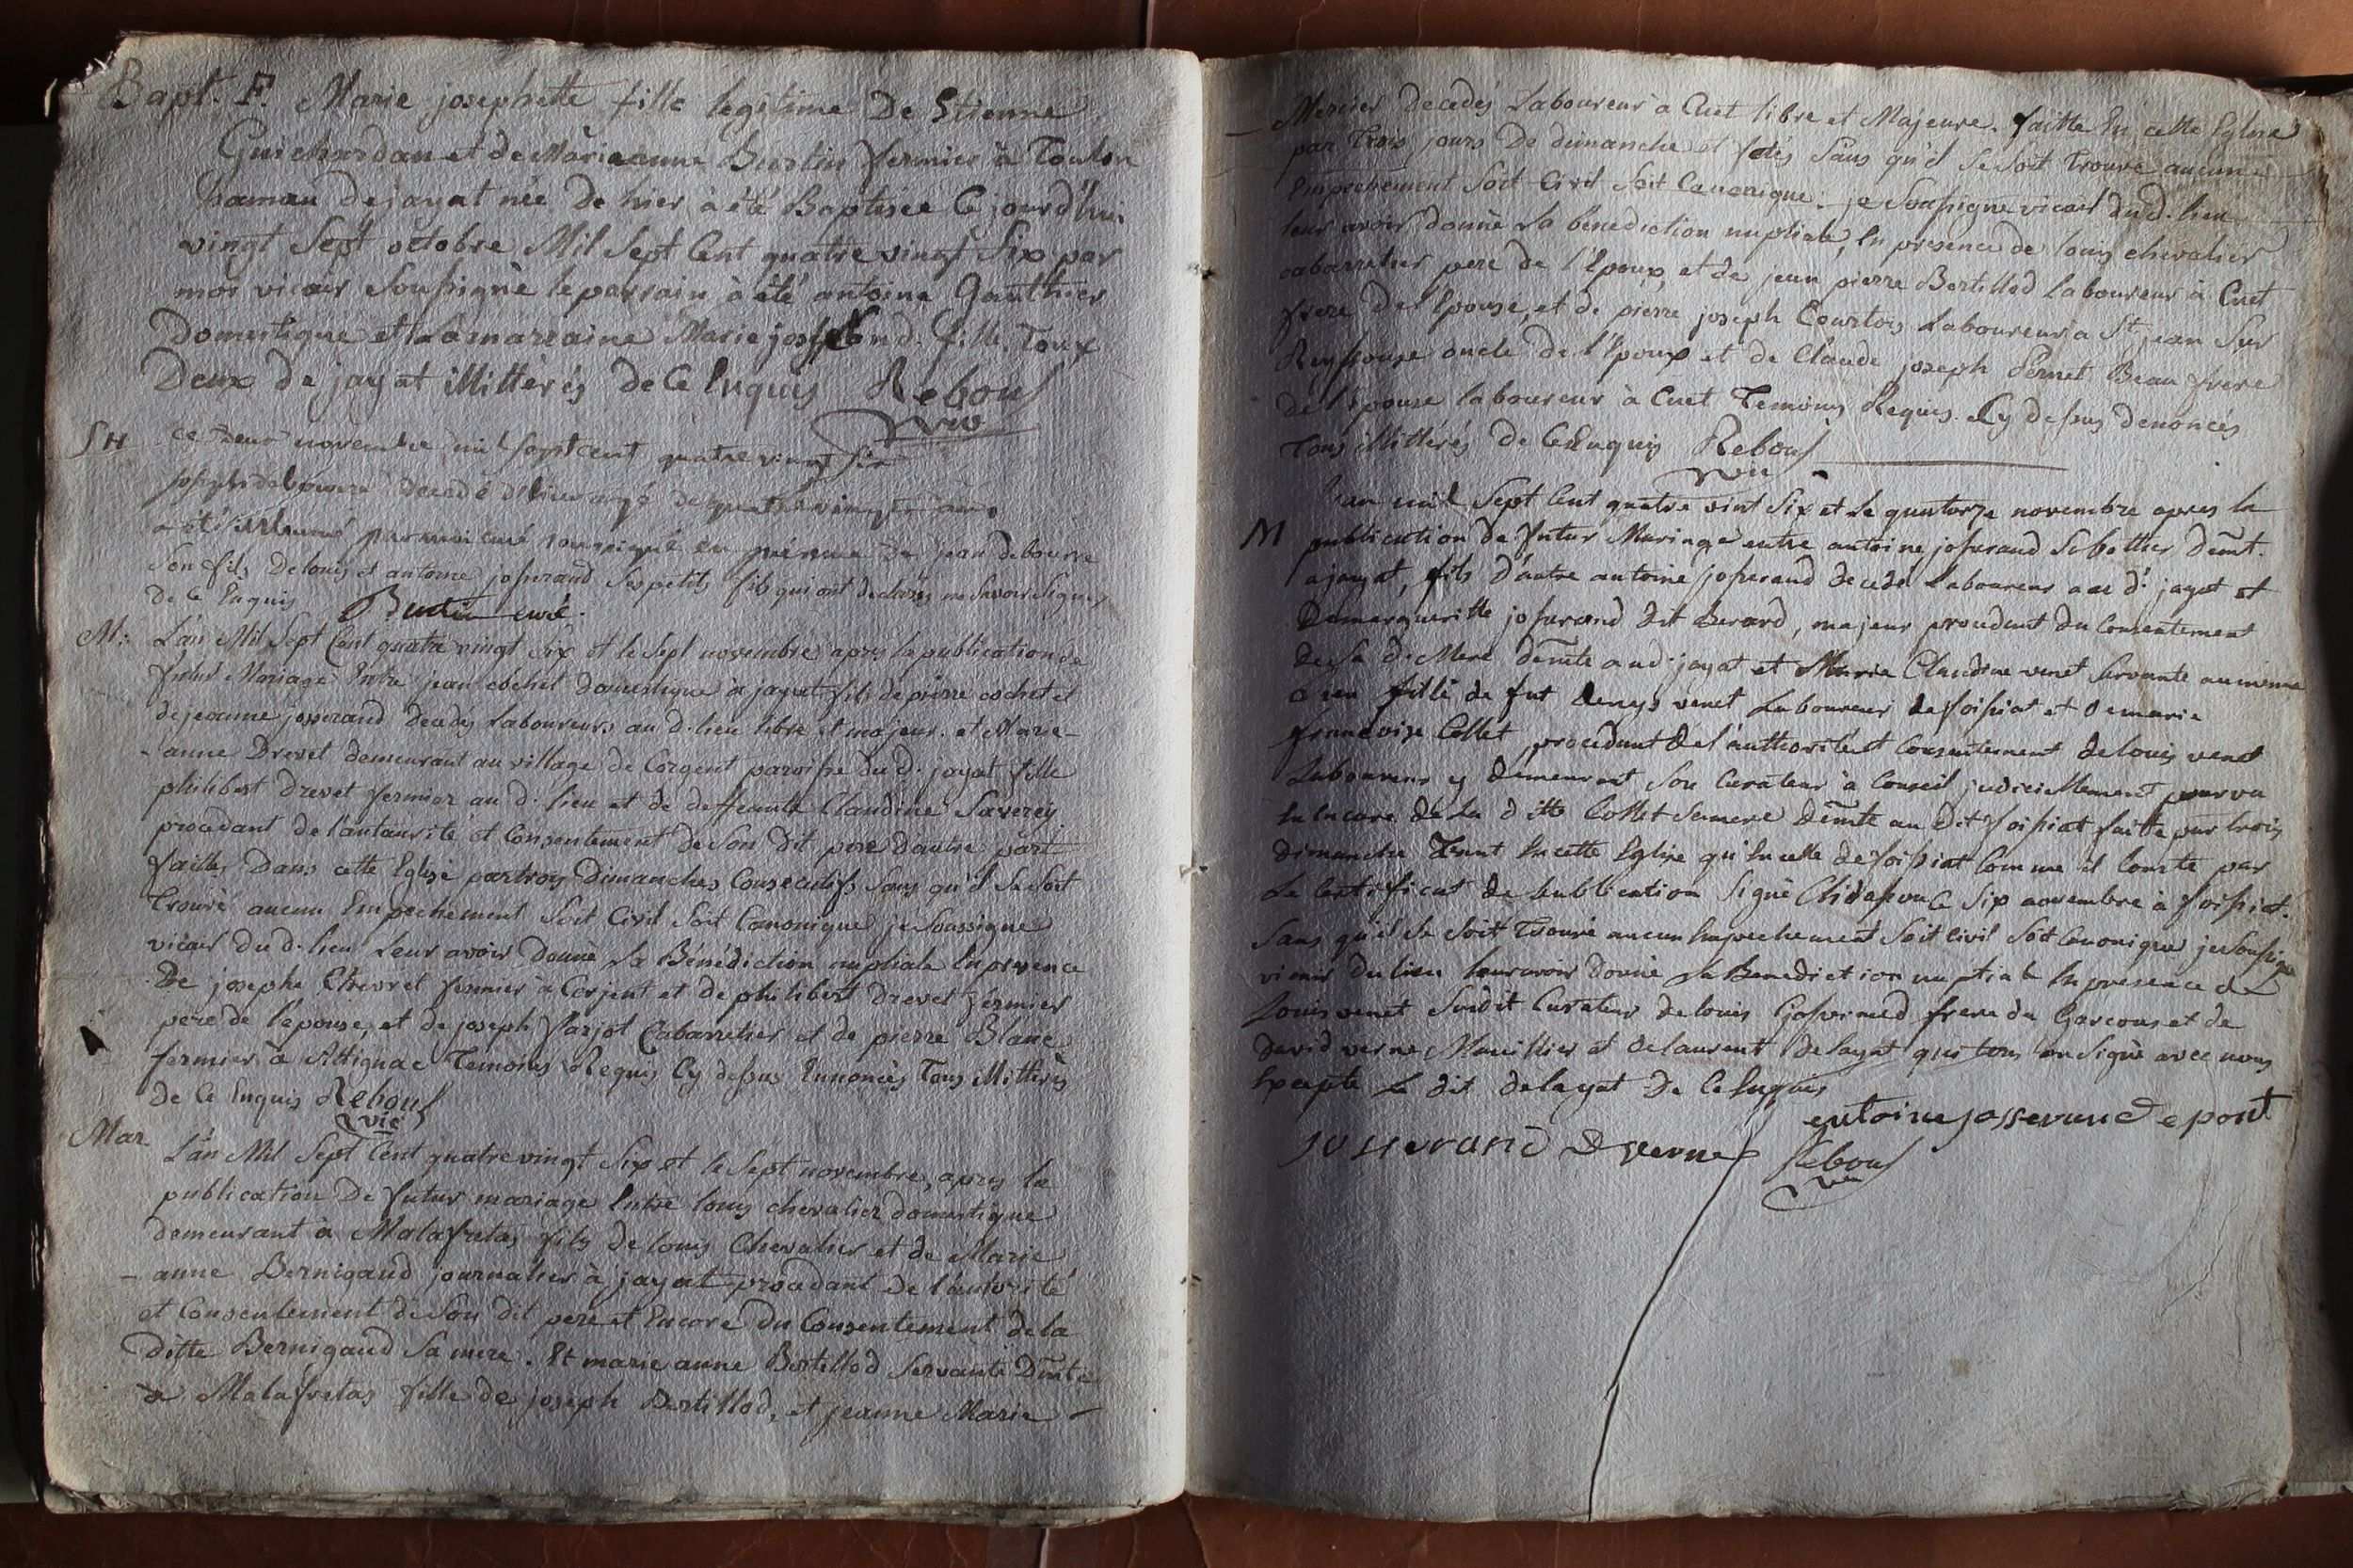 Bapt. F. Marie josephette fille legitime De Etienne
Guichardan et de Marieanne Burtin fermier à Toulon
hamau de jayat née de hier à été Baptisée ce jourd'hui
vingt Sept octobre Mil Sept Cent quatre vingt Six par
moi vicair Soussignè le parrain à été antoine Gauthier
Domestique et La marraine Marie fille, Toux
Deux de jayat illittérés de Ce Enquis Rebouf
vic
SH ce novembre mil Sept cent quatre vingt six
joseph debourre decedé d'hier agé de quatre vingt ans
a été inhumé par moi curé soussigné en présence de jean debourre
Son fils De louis et antoine josserand Ses petits fils qui ont declarés ne Savoir Signer
de Ce Enquis Burtin curé.
M: L'an Mil Sept Cent quatre vingt Six et le Sept novembre apres la publication de
futur Mariage Entre jean cochet domestique à jayat fils de pierre cochet et
de jeanne josserand decedés Laboureurs au d. lieu libre et majeur. et Marie
- anne Drevet demeurant au village de Corgent paroisse du d. jayat fille
philibert Drevet fermier au d. lieu et de deffeunte Claudine Saverey
procedant de l'antaurité et Consentement de Son dit pere d'autre part
faitte, Dans cette Eglise par troys Dimanches Consecutifs Sans qu'il Se Soit
Trouvè aucun Empechement Soit Civil Soit Canonique je Soussigne
vicair du d. lieu Leur avoir Donnè La Bénédiction nuptiale En presence
De josephe Chevret fermier à Corjent et de philibert Drevet fermier
pere de l'epouse, et de joseph farjot Cabarretier et de pierre Blanc
fermier à Attignac Temoins Requis Cy dessus Ennoncés Tous illitterés
de Ce Enquis Rebouf
vic
Mar L'an Mil Sept Cent quatre vingt Six et le Sept novembre, apres la
publication De futur mariage Entre louis chevalier domestique
demeurant à Malafretas fils de louis Chevalier et de Marie
- anne Bernigaud journalier à jayat procedant de l'autorité
et Consentement de Son dit pere et Encore du Consentement de la
ditte Bernigaud Sa mere. Et marie anne Bertillod Servante Dmte
a Malafretas fille de joseph Bertillod, et jeanne Marie -
- Mercier decedés Laboureur à Cuet libre et Majeure. faitte En cette Eglise
par Trois jours De dimanche et fetes Sans qu'il Se Soit Trouvé aucun
Empechement Soit Civil Soit Canonique. je Soussigne vicair du d. lieu
leur avoir donné La bénediction nuptiale, En presence de louis chevalier
cabarretier pere de l'Epoux, et de jean pierre Bertillod laboureur à Cuet
frere de l'Epouse, et de pierre joseph Courtois Laboureur à St. jean Sur
Reyssouse oncle de l'Epoux et de Claude joseph Pernet Beau frere
de l'Epouse laboureur à Cuet Temoins Requis. Cy dessus denoncés
Tous illittérés de Ce Enquis Rebouf
vic
L'an mil Sept Cent quatre vint Six et Le quatorze novembre apres la
M publication de futur Mariage entre antoine josserand Sabottier demt.
a jayat, fils d'autre antoine josserand decedé Laboureur au d. jayat et
De margueritte josserand dit Berard, majeur procedant du Consentement
de Sa d. Mere demte au d. jayat et Marie Claudine venet Servante au meme
lieu fille de fut denys venet Laboureur de foissiat et de marie
francoise Collet, procedant de l'authorité et Consentement de louis venet
Laboureur y demeurant Son Curateur à Conseil judiciellement pourvu
En Encore de La ditte Collet Sa mere demte au dit foissiat faitte par trois
dimanche Tant En cette Eglise qu'En celle de foissiat Comme il Conste par
Le Certificat de publication Signé ce Six novembre à foissiat.
Sans qu'il Se Soit Trouvé aucun Empechement Soit Civil Soit Canonique je Soussigne
vicair du lieu leur avoir Donné La Benediction nuptiale En presence de
Louis venet Susdit Curateur de louis frere du Garcons et de
david verne Marillier et de laurent delayat qui tous ont Signé avec nous
Excepté Le dit delayat De Ce Enquis
antoine josserand epout
josserand D verne Rebouf
vic